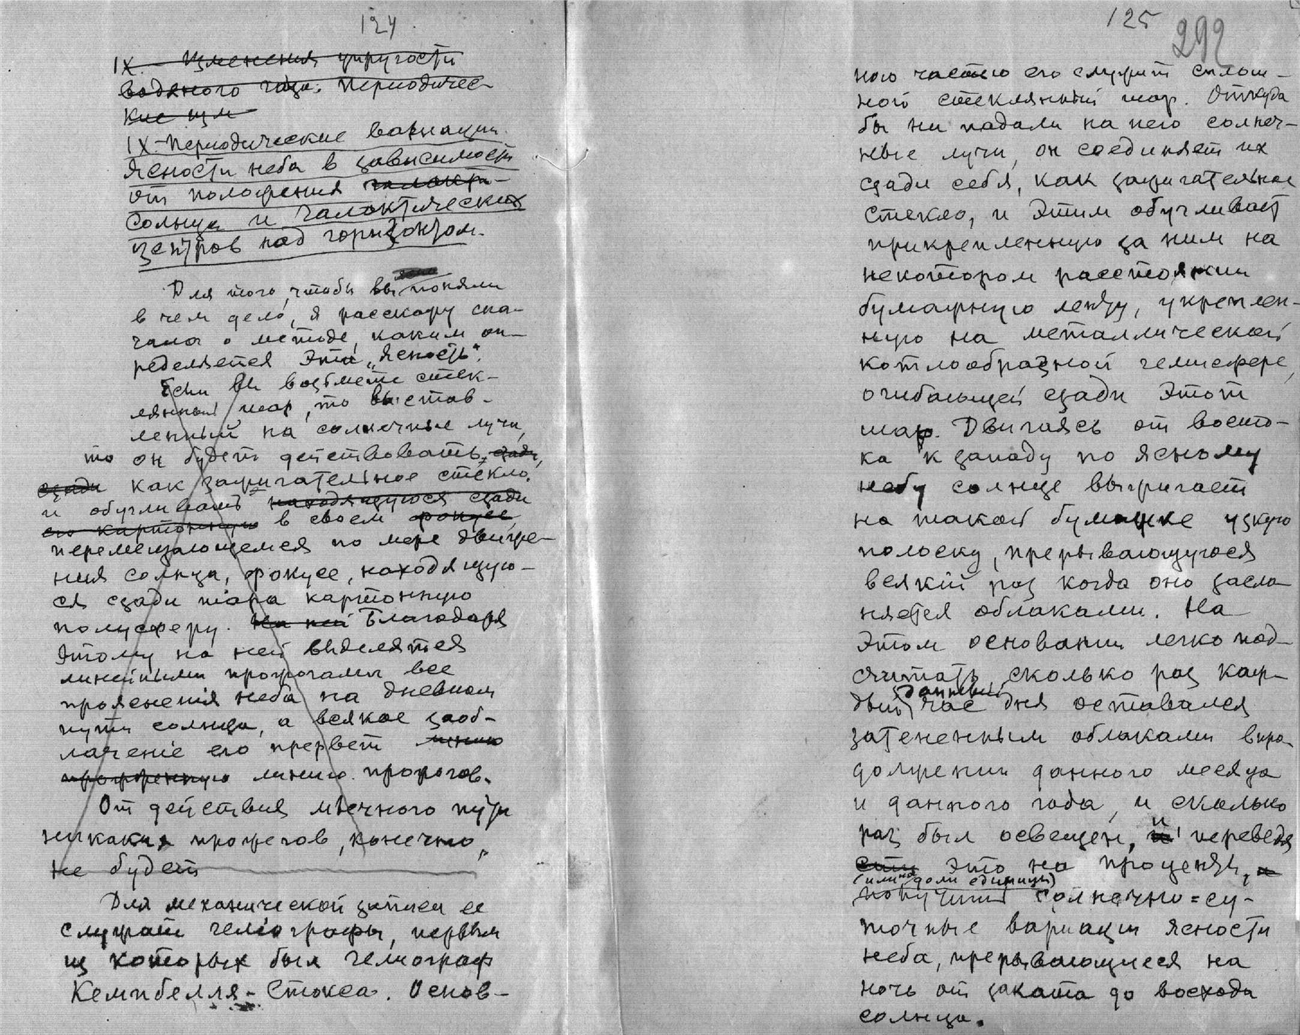 124
IX. - Изменения упругости
водяного газа. Периодичес-
кие изм
IX - Периодические вариации
Ясности неба в зависимости
от положения галакти-
Солнца и галактических
центров над горизонтом.
Для того, чтобы вы поняли
в чем дело, я расскажу сна-
чала о методе, каким оп-
ределяется эта „Ясность".
Если вы возьмете стек-
лянный шар, то выстав-
ленный на солнечные лучи,
то он будет действовать сзади,
сзади как зажигательное стекло.
и обугливать находящуюся сзади
его картонную в своем фокусе,
перемещающемся по мере движе-
ния солнца, фокусе, находящую-
ся сзади шара картонную
полусферу. На ней Благодаря
этому на ней выделятся
линейными прожогами все
прояснения неба на дневном
пути солнца, а всякое заоб-
лачение его прервет линию
прожженную линию прожогов.
От действия млечного пути
никаких прожогов, конечно,
не будет
Для механической записи ее
служат гелиографы, первым
из которых был гелиограф
Кемпбелля-Стокса. Основ-
125
292
ною частью его служит сплош-
ной стеклянный шар. Откуда
бы ни падали на него солнеч-
ные лучи, он соединяет их
сзади себя, как зажигательное
стекло, и этим обугливает
прикрепленную за ним на
некотором расстоянии
бумажную ленту, укреплен-
ную на металлической
котлообразной гемисфере,
огибающей сзади этот
шар. Двигаясь от восто-
ка к западу по ясному
небу солнце выжигает
на такой бумажке узкую
полоску, прерывающуюся
всякий раз когда оно засло-
няется облаками. На
этом основании легко под-
считать, сколько раз каж-
дый данный час дня оставался
затененным облаками в про-
должении данного месяца
и данного года, и сколько
раз был освещен, и переведя
это на проценты,
(или на доли единицы)
получить солнечно=су-
точные вариации ясности
неба, прерывающиеся на
ночь от заката до восхода
солнца.